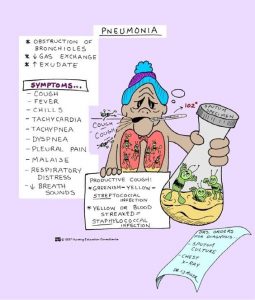 PNEUMONIA
* OBSTRUCTION OF
BRONCHIOLES
* ↓ GAS EXCHANGE
* ↑ EXUDATE
SYMPTOMS...
- COUGH
- FEVER
- CHILLS
- TACHYCARDIA
- TACHYPNEA
- DYSPNEA
- PLEURAL PAIN
- MALAISE
- RESPIRATORY
DISTRESS
- ↓ BREATH
SOUNDS
102°
COUGH
COUGH
SPUTUM
SPECIMEN
PRODUCTIVE COUGH:
* GREENISH-YELLOW=
STREPTOCOCCAL
INFECTION
* YELLOW OR BLOOD
STREAKED=
STAPHYLOCOCCAL
INFECTION
Nursing Education Consultants
DRS. ORDERS
FOR DIAGNOSIS:
- SPUTUM
CULTURE
- CHEST
X-RAY